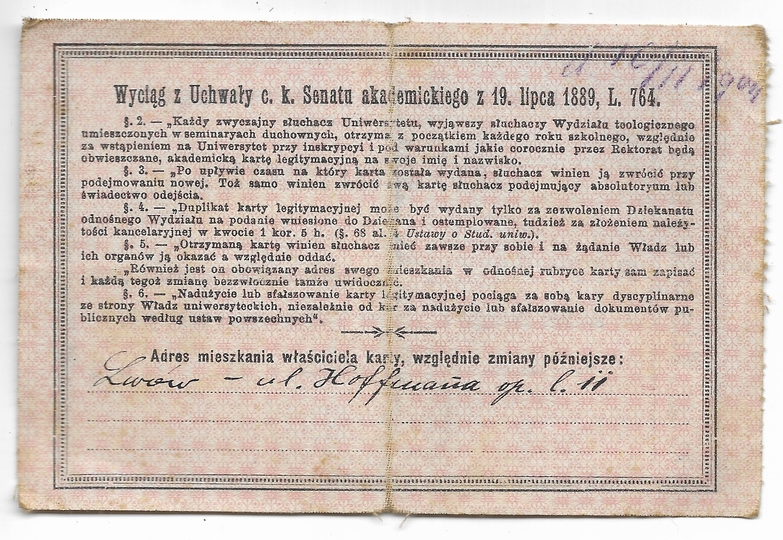 Wyciąg z Uchwały c. k. Senatu akademickiego z 19. lipca 1889, L. 764.
§. 2. — „Każdy zwyczajny słuchacz Uniwersytetu, wyjąwszy słuchaczy Wydziału teologicznego
umieszczonych w seminaryach duchownych, otrzyma z początkiem każdego roku szkolnego, względnie
za wstąpieniem na Uniwersytet przy inskrypcyi i pod warunkami jakie corocznie przez Rektorat będą
obwieszczane, akademicką kartę legitymacyjną na swoje imię i nazwisko.
§. 3. — „Po upływie czasu na który karta została wydana, słuchacz winien ją zwrócić przy
podejmowaniu nowej. Toż samo winien zwrócić swą kartę słuchacz podejmujący absolutoryum lub
świadectwo odejścia.
§. 4. — „Duplikat karty legitymacyjnej może być wydany tylko za zezwoleniem Dziekanatu
odnośnego Wydziału na podanie wniesione do Dziekana i ostemplowane, tudzież za złożeniem należy-
tości kancelaryjnej w kwocie 1 kor. 5 h. (§. 68 al. 4 Ustawy o Stud. uniw.).
§. 5. — „Otrzymaną kartę winien słuchacz mieć zawsze przy sobie i na żądanie Władz lub
ich organów ją okazać a względnie oddać.
„Również jest on obowiązany adres swego mieszkania w odnośnej rubryce karty sam zapisać
i każdą tegoż zmianę bezzwłocznie tamże uwidocznić.
§. 6. — „Nadużycie lub sfałszowanie karty legitymacyjnej pociąga za sobą kary dyscyplinarne
ze strony Władz uniwersyteckich, niezależnie od kar za nadużycie lub sfałszowanie dokumentów pu-
blicznych według ustaw powszechnych“.
Adres mieszkania właściciela karty, względnie zmiany późniejsze:
Lwów — ul. Hoffmana op. l. 11